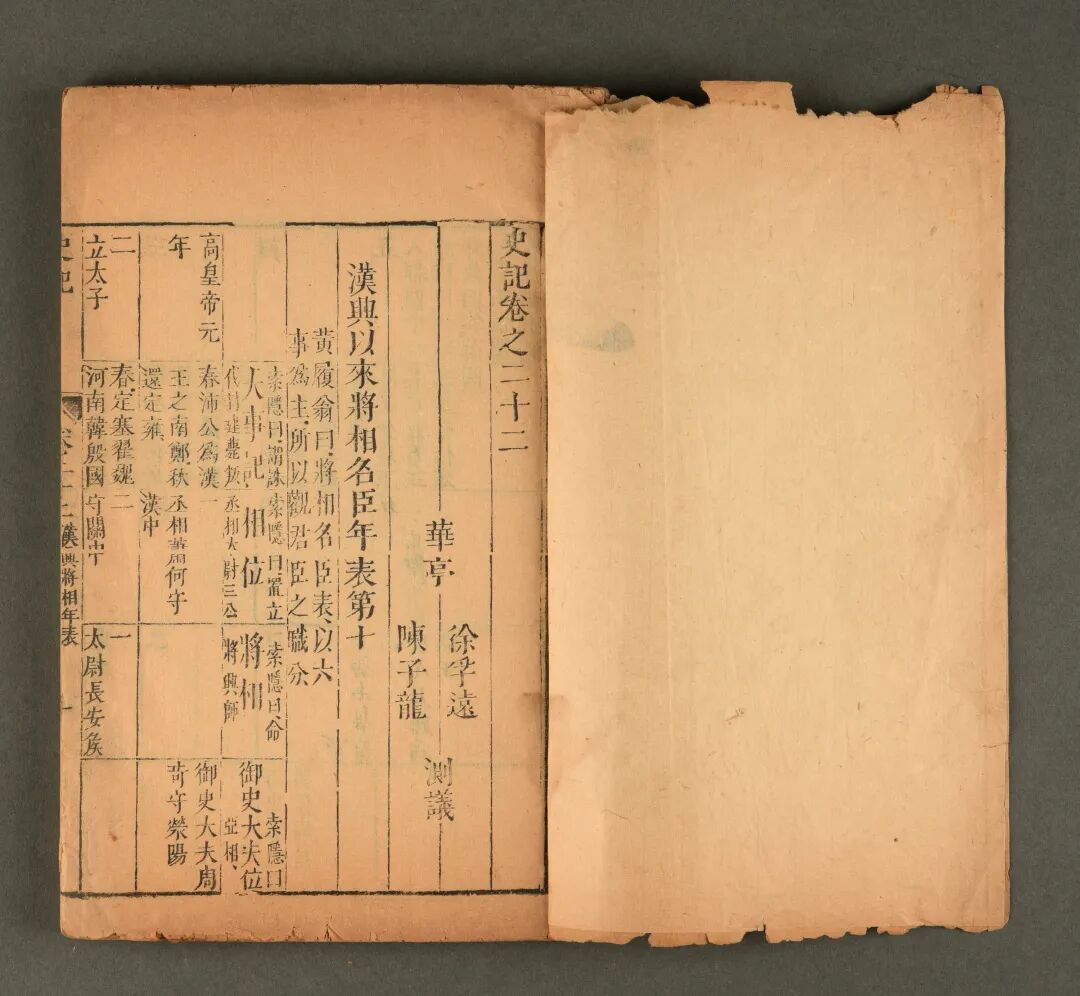 史記卷之二十二
華亭
徐孚遠
陳子龍
測議
漢興以來將相名臣年表第十
黃履翁曰將相名臣表以六
事為主所以觀君臣之職分
索隱曰謂誅
大事記
伐封建薨叛
索隱曰置立
相位
丞相太尉三公
索隱曰命
將相
將興師
索隱曰
御史大夫位
亞相
高皇帝元
年
春沛公為漢
王之南鄭秋
還定雍
一
丞相蕭何守
漢中
御史大夫周
苛守滎陽
二
立太子
春定塞翟魏
河南韓殷國
二
守關中
一
太尉長安侯
史記
漢興將相年表
一